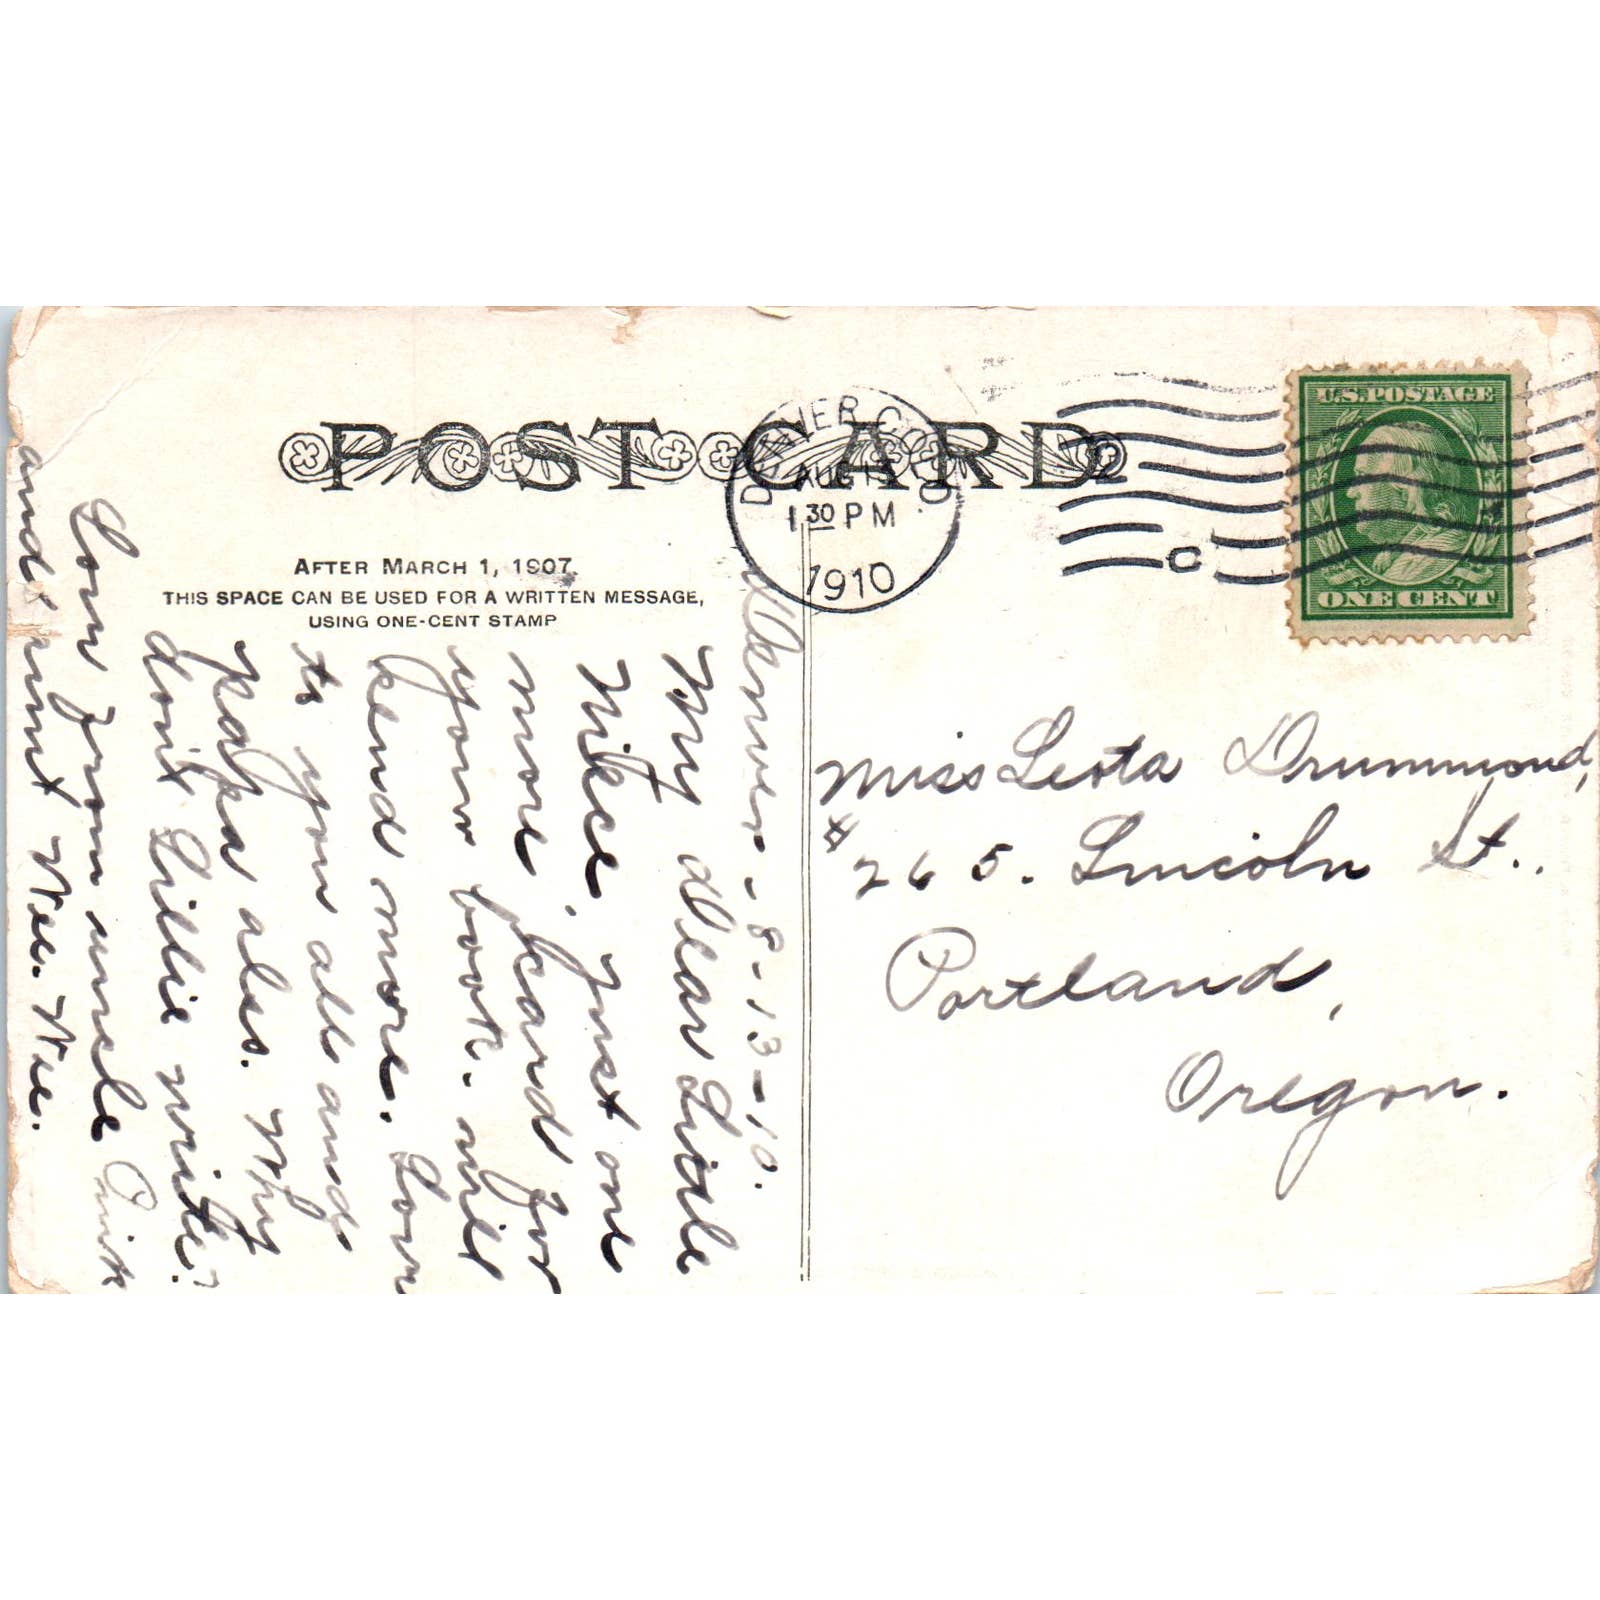 POST CARD
AFTER MARCH 1, 1907.
THIS SPACE CAN BE USED FOR A WRITTEN MESSAGE,
USING ONE-CENT STAMP
DENVER COLO.
AUG 13
1 30 PM
1910
C
U.S. POSTAGE
ONE CENT
Denver. 8-13-10.
My dear Little
Niece, just one
more, card for
your book. will
send more. Love
to you all and
papa also. Why
dont Lillie write?
Love from uncle
and aunt Wee. Wee.
Miss Leota Drummond,
#265. Lincoln St..
Portland,
Oregon.